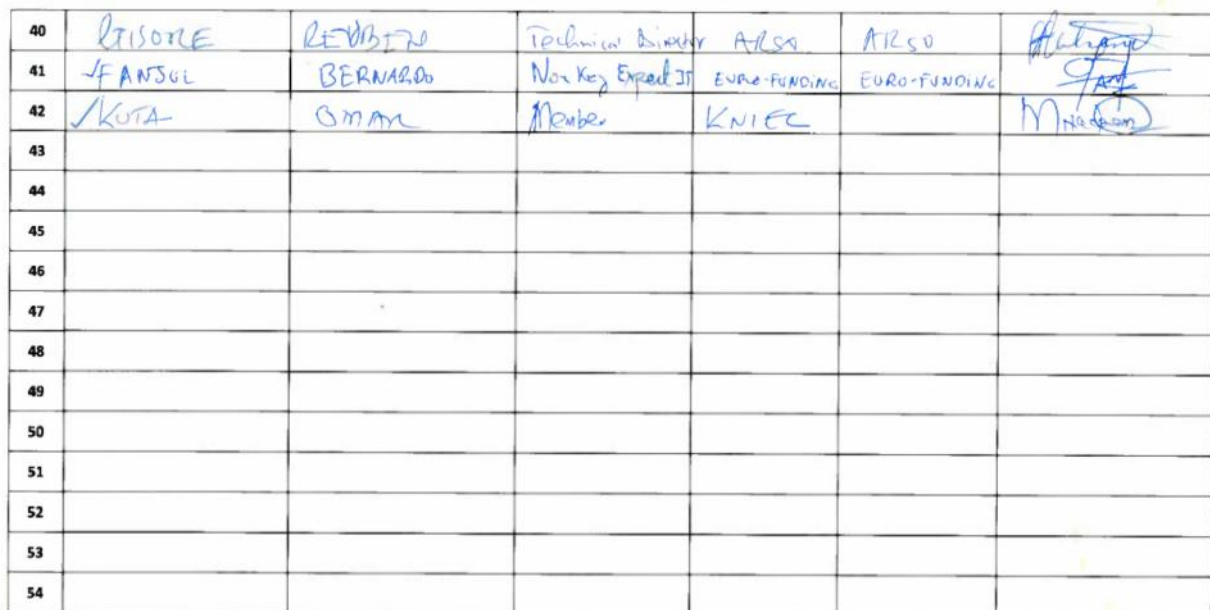 40 GISORE REUBEN Technical Director ARSO ARSO
41 FANJUL BERNARDO Non Key Expert EURO-FUNDING EURO-FUNDING
42 KUTA OMAR Member KNIEC
43
44
45
46
47
48
49
50
51
52
53
54